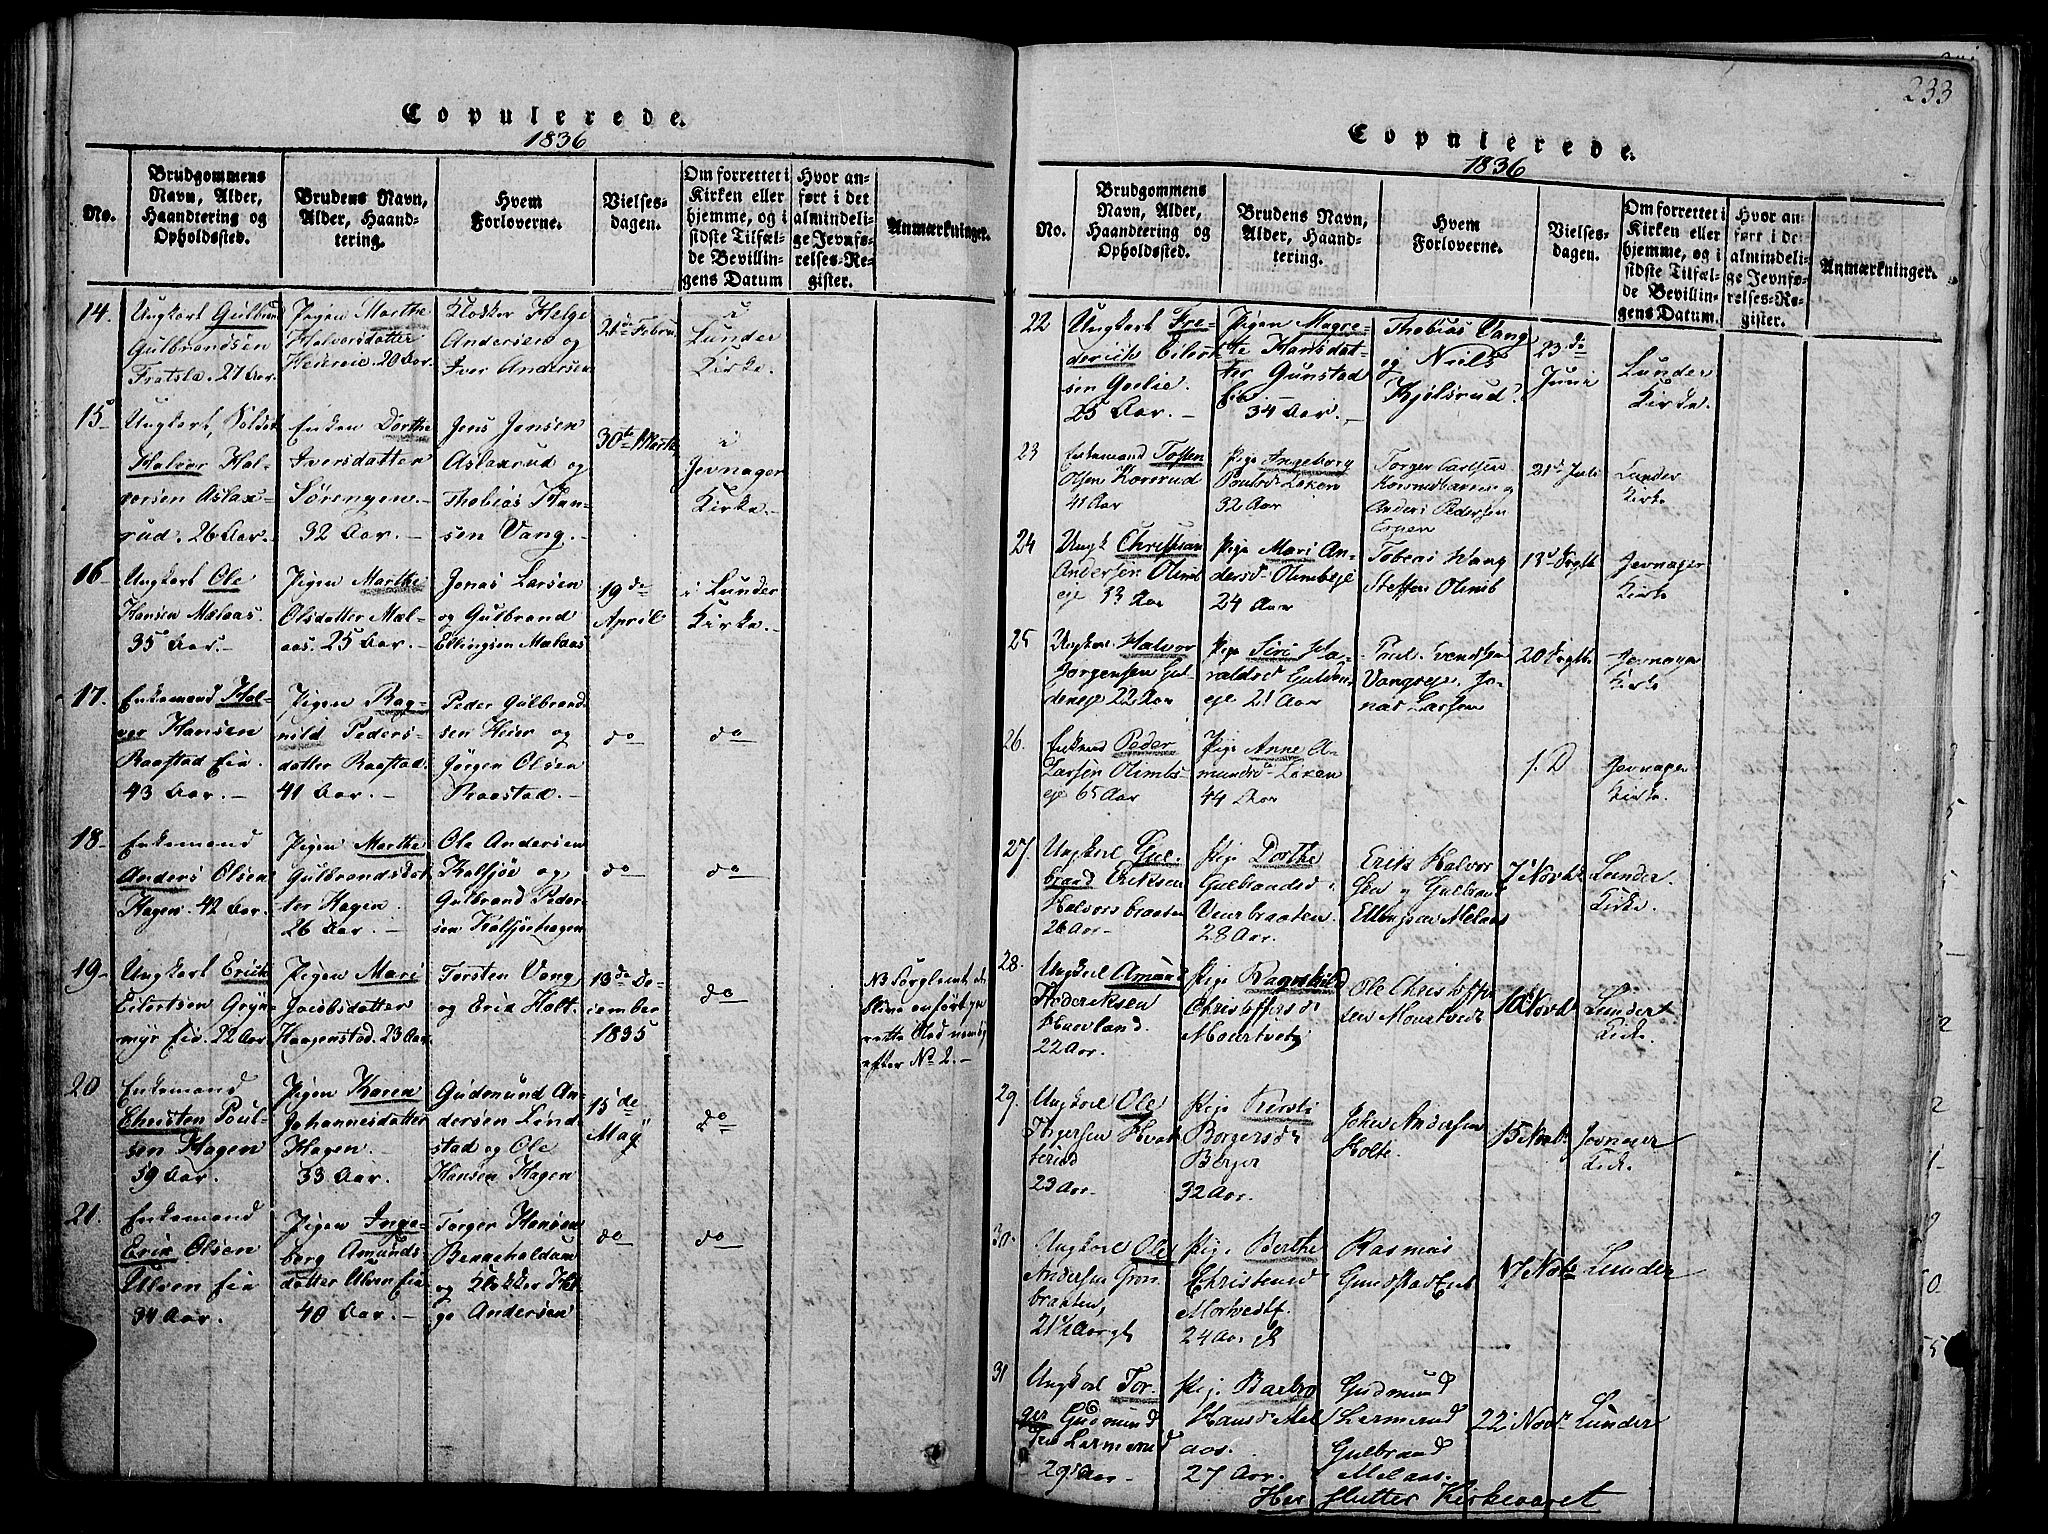 233
Copulerede.
1836
No.
Brudgommens
Navn, Alder,
Haandtering og
Opholdssted.
Brudens Navn,
Alder, Haand-
tering.
Hvem
Forloverne.
Vielses-
dagen.
Om forrettet i
Kirken eller
hjemme, og i
sidste Tilfæl-
de Bevillin-
gens Datum
Hvor an-
ført i det
almindeli-
ge Jevnfø-
relses-Re-
gister.
Anmærkninger.
14.
Ungkarl Gulbrand
Gulbrandsen
27 Aar.
Pigen Marthe
Halvorsdatter
20 Aar.
Klokker Helge
Andersen og
Iver Andersen
21de Februar
i
Lunder
Kirke.-
15-
Ungkarl, Soldat
Halvor Hal-
vorsen Aslax-
rud. 26 Aar.
Enken Dorthe
Iversdatter
Sørengene.-
32 Aar.-
Jens Jensen
Aslaxrud og
Thobias Han-
sen Vang.-
30te Marts
i
Jevnager
Kirke.-
16-
Ungkarl Ole
Hansen Mælaas.
35 Aar.-
Pigen Marthe
Olsdatter Mæl-
aas. 25 Aar.-
Jonas Larsen
og Gulbrand
Ellingsen Mælaas
19de
April
i Lunder
Kirke.-
17.
Enkemand Hal-
vor Hansen
Raastad Eie.
43 Aar.-
Pigen Rag-
nild Peders-
datter Raastad.
41 Aar.-
Peder Gulbrand-
sen Heier og
Jörgen Olsen
Raastad.-
do
do
18-
Enkemand
Anders Olsen
Hagen. 42 Aar.
Pigen Marthe
Gulbrandsdat-
ter Hagen.
26 Aar.-
Ole Andersen
Kalsjøe og
Gulbrand Peder-
sen Kalsjøehagen
do
do
19-
Ungkarl Erick
Eilertsen Gryn-
myr Eie. 22 Aar.
Pigen Mari
Jacobsdatter
Haagenstad. 23 Aar.
Torsten Vang
og Erik Holt.
13de De-
cember
1835
do
NB Forglemt at
blive anført paa
rette Sted nemlig
efter No 2.-
20
Enkemand
Christen Poul-
sen Hagen
59 Aar.
Pigen Karen
Johannesdatter
Hagen.-
33 Aar.-
Gudmund An-
dersen Lind-
stad og Ole
Hansen Hagen
15de
Maj
do
21.
Enkemand
Erik Olsen
Ulven Eie
34 Aar.
Pigen Inge-
borg Amunds-
datter Ulven Eie
40 Aar.-
Torger Hansen
og Klokker Hel-
ge Andersen
do
do
Copulerede.
1836
No.
Brudgommens
Navn, Alder,
Haandtering og
Opholdssted.
Brudens Navn,
Alder, Haand-
tering.
Hvem
Forloverne.
Vielses-
dagen.
Om forrettet i
Kirken eller
hjemme, og i
sidste Tilfæl-
de Bevillin-
gens Datum.
Hvor an-
ført i det
almindeli-
ge Jevnfø-
relses-Re-
gister.
Anmærkninger.
22
Ungkarl Fre-
derich Eilert-
sen
25 Aar.-
Pigen Magre-
te Hansdat-
ter Gunstad
34 Aar.-
Thobias Vang
og Niels
Kjölsrud.
23de
Juni
Lunder
Kirke.
23
Enkemand Tosten
Olsen
41 Aar
Pige Ingeborg
32 Aar
Torger Carlsen
og
Anders Pedersen
21de Juli
Lunder
Kirke
24
Ungk Christian
Andersen Olimb
eje 33 Aar
Pige Mari An-
dersd Olimbeje
24 Aar
Tobias Wang
Steffen Olimb
Jevnager
Kirke
25
Ungkarl Halvor
Jorgensen Gul-
deneje 22 Aar
Pige Siri Ha-
raldsd Gulden-
eje 21 Aar
Paul Svendsen
Vangseje, Jo-
nas Larsen
Jevnager
Kirke
26.
Enkmd Peder
Larsen Olimbs-
eje 65 Aar
Pige Anne A-
mundsd
44 Aar
s. D
Jevnager
Kirke.
27.
Ungkarl Gul-
brand Eriksen
Halvorsbraaten
26 Aar.
Pige Dorthe
Gulbrandsd.
28 Aar.
Erik Halvor
sen og Gulbrand
Ellingsen Mælaas
7 Novbr
Lunder
Kirke.
28.
Ungkarl Amund
Haevland.
22 Aar.
Pige Ragnhild
Christoffersd
Ole Christoffer
sen
Lunder
Kirk.
29.
Ungkarl Ole
23 Aar.
Pige Kersti
Borgersd
Berger
32 Aar.
Johan Andersen
Holte.
15 Novbr
Jevnager
Kirk.
30.
Ungkarl Ole
Andersen Gron-
braaten,
21½ Aar gl
Pige Berthe
Christensd
24 Aar gl
Rasmus
Gundstad Enk
17 Novbr
Lunder
31
Ungkarl Tor-
ger Gudmund
sen Lermerud
29 Aar-
Pige Barbro
Hansd Mel
aas.
27 Aar.
Gudmund
Lermerud
Gulbrand
Melaas.
22 Novbr
Lunder
Her slutter Kirkeaaret